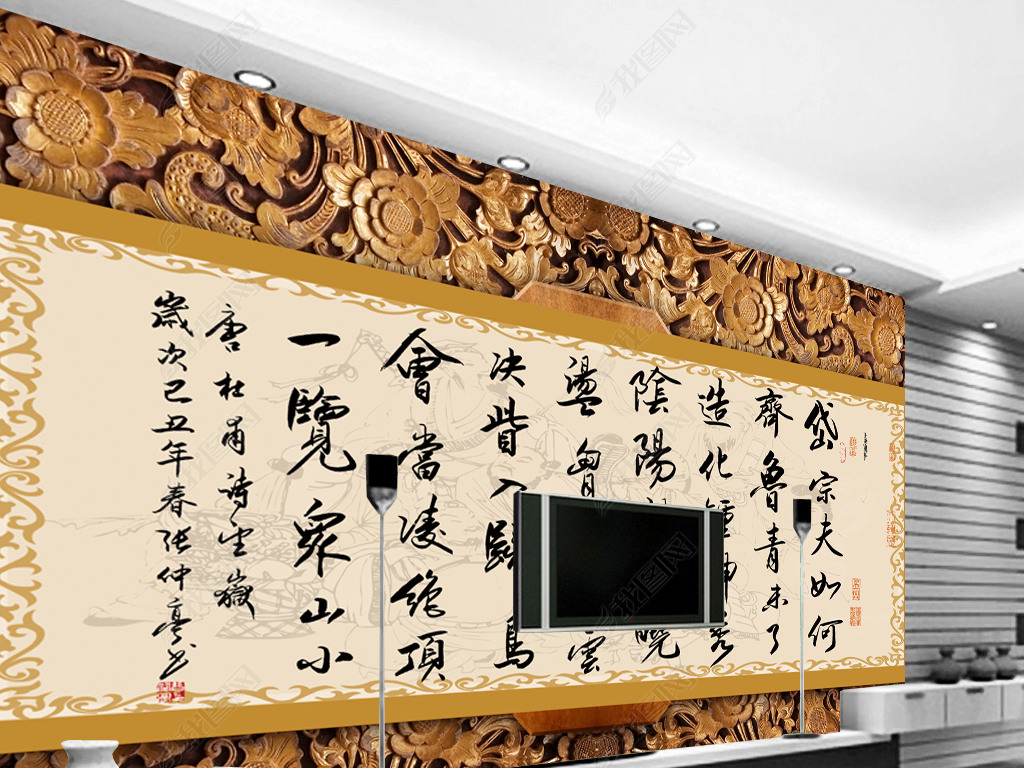 岱宗夫如何
齊魯青未了
造化鍾神秀
陰陽曉
盪胷雲
決眥入歸鳥
會當凌絶頂
一覽眾山小
唐杜甫詩望嶽
歲次己丑年春張仲亭書
我图网